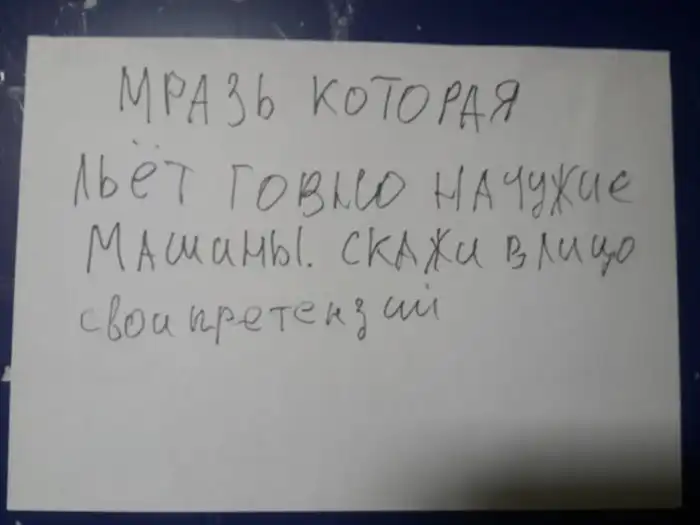 МРАЗЬ КОТОРАЯ
ЛЬЁТ ГОВНО НА ЧУЖИЕ
МАШИНЫ. СКАЖИ В ЛИЦО
свои претензий